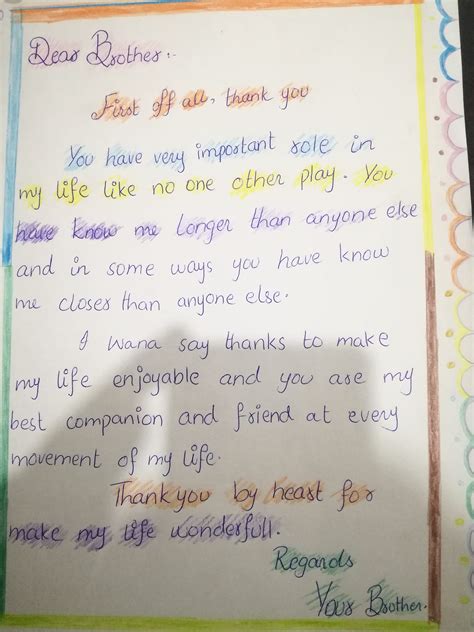 Dear Brother:.
First off all, thank you
You have very important role in
my life like no one other play. You
have know me Longer than anyone else
and in some ways you have know
me closer than anyone else.
I Wana say thanks to make
my life enjoyable and you are my
best companion and friend at every
movement of my life.
Thankyou by heart for
make my life wonderfull.
Regards
Your Brother.